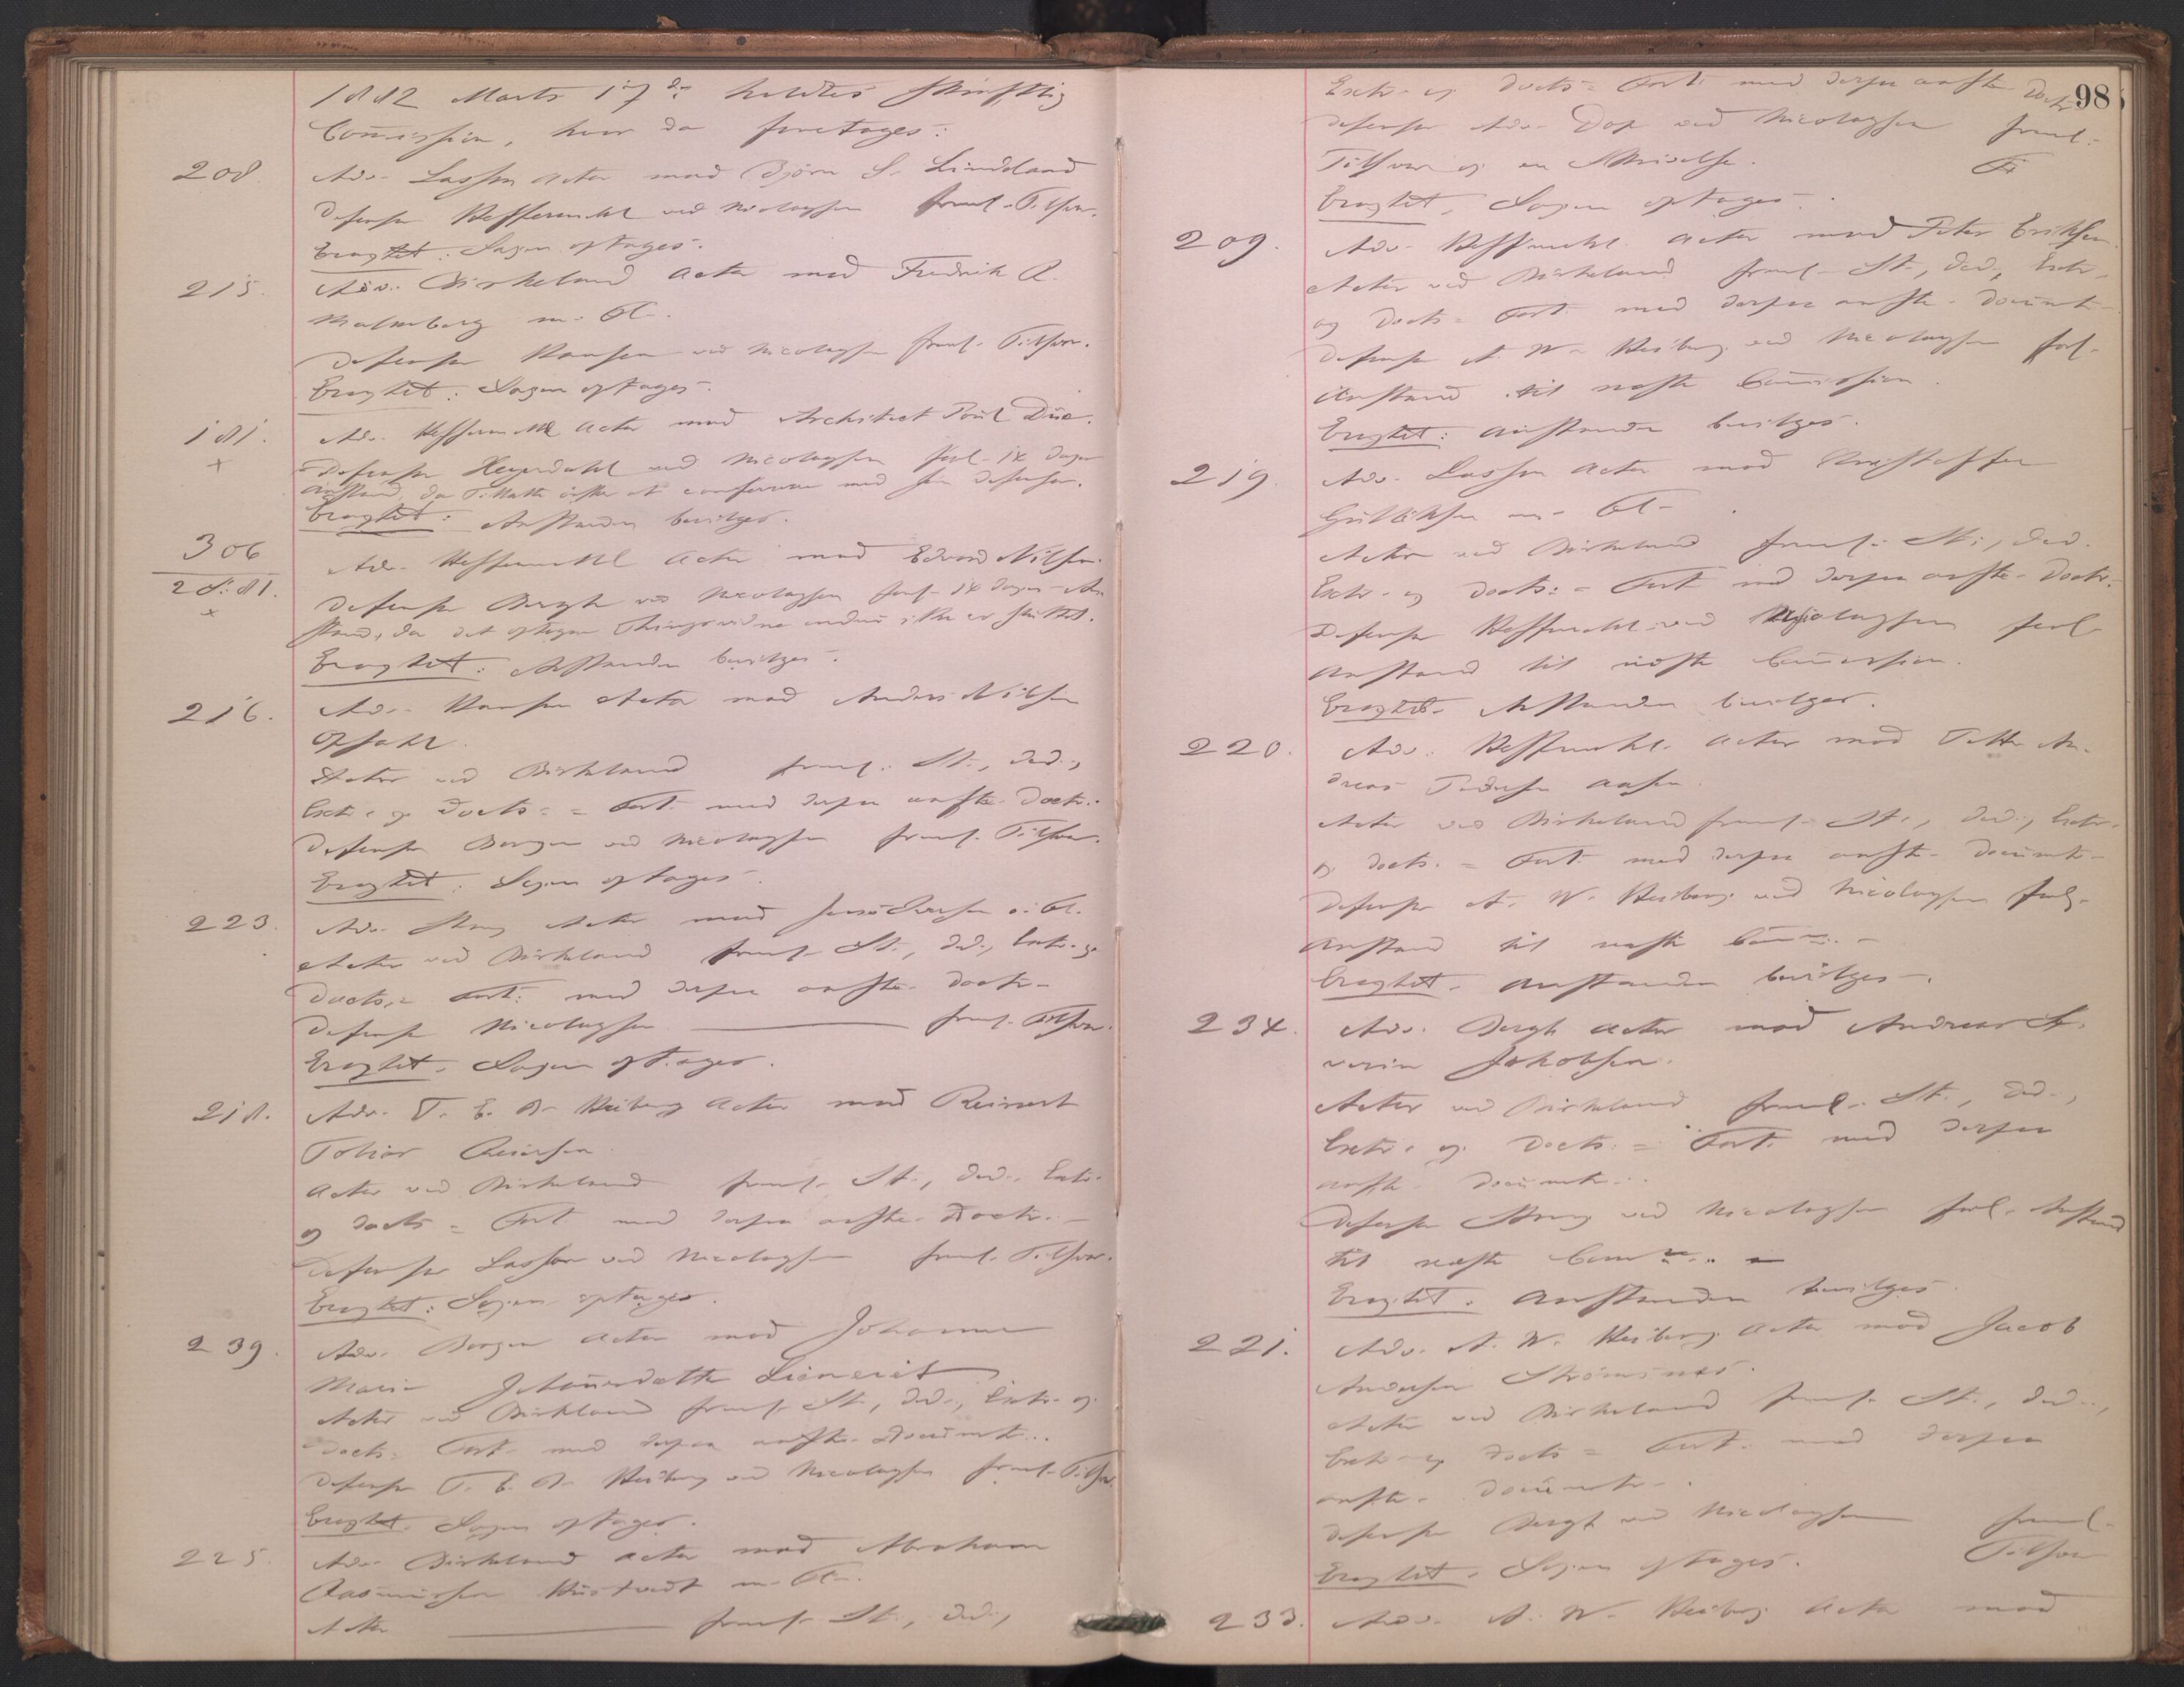 1882 Marts 17de holdtes skriftlig
Comission, hvor da foretages:
208. Adv. Lasson Actor mod Björn S. Lindland
Defensor Hesselberg ved Nicolaysen freml. Tilsvar.
Eragtet: Sagen optages.
215. Adv. Birkeland Actor mod Fredrik A.
Malmberg m. Fl.
Defensor Hansen ved Nicolaysen freml. Tilsvar.
Eragtet: Sagen optages.
181. Actor mod Architect Poul Due.
+ Defensor Heyerdahl ved Nicolaysen forl. 14 Dages
Anstand, da Tiltalte önsker at conferere med sin Defensor.
Eragtet: Anstanden bevilges.
306 Adv. Actor mod Edvard Nilsen
2 S. 81. Defensor Bergh ved Nicolaysen forl. 14 Dages An-
+ stand, da det optagne Thingsvidne endnu ikke er sluttet.
Eragtet: Anstanden bevilges.
216. Adv. Hansen Actor mod Anders Nilsen
Opsahl.
Actor ved Birkeland freml. St., Ded.,
Extr. og Docts = Fort. med derpaa anfte. Doctr.
Defensor Borgen ved Nicolaysen freml. Tilsvar.
Eragtet: Sagen optages.
223. Adv. Strøm Actor mod Jens Iversen o. Fl.
Actor ved Birkeland freml. St., Ded., Extr. og
Docts. = Fort. med derpaa anfte. Doctr.
Defensor Nicolaysen freml. Tilsvar.
Eragtet. Sagen optages.
218. Adv. T. E. B. Heiberg Actor mod Reinert
Tobias Reiersen
Actor ved Birkeland freml. St., Ded., Extr.
og Docts = Fort. med derpaa anfte. Doctr.
Defensor Lasson ved Nicolaysen freml. Tilsvar.
Eragtet: Sagen optages.
239. Adv. Borgen Actor mod Johanne
Marie
Actor ved Birkeland freml. St., Ded., Extr. og
Docts. Fort. med derpaa anfte. Documtr.
Defensor T. E. B. Heiberg ved Nicolaysen freml. Tilsvar.
Eragtet. Sagen optages.
225. Adv. Birkeland Actor mod Abraham
Rasmussen m. Fl.
Actor freml. St., Ded.,
98
Extr. og Docts = Fort. med derpaa anfte Doctr.
Defensor Adv. ved Nicolaysen freml.
Tilsvar og en Skrivelse.
Eragtet. Sagen optages.
209. Adv. Actor mod Peter Eriksen
Actor ved Birkeland freml. St., Ded., Extr.
og Docts = Fort. med derpaa anfte. Documtr.
Defensor A. W. Heiberg ved Nicolaysen forl.
Anstand til næste Comission.
Eragtet: Anstanden bevilges.
219. Adv. Lasson Actor mod Kristoffer
Gulliksen m. Fl.
Actor ved Birkeland freml. St., Ded.
Extr. og Docts. = Fort. med derpaa anfte. Doctr.
Defensor ved Nicolaysen forl.
Anstand til næste Comission.
Eragtet. Anstanden bevilges.
220. Adv. Actor mod An-
dreas Pedersen Aasen.
Actor ved Birkeland freml. St., Ded., Extr.
og Docts. = Fort. med derpaa anfte. Documtr.
Defensor A. W. Heiberg ved Nicolaysen forl.
Anstand til næste Comm.
Eragtet. Anstanden bevilges.
234. Adv. Bergh Actor mod Andreas Se-
verin Jakobsen.
Actor ved Birkeland freml. St., Ded.,
Extr. og Docts. = Fort. med derpaa
anfte. Documtr.
Defensor Strøm ved Nicolaysen forl. Anstand
til næste Comm.
Eragtet. Anstanden bevilges
221. Adv. A. W. Heiberg Actor mod Jacob
Andersen Strömsnes.
Actor ved Birkeland freml. St., Ded.,
Extr. og Docts = Fort. med derpaa
anfte. Documtr.
Defensor Bergh ved Nicolaysen freml.
Tilsvar
Eragtet. Sagen optages.
233. Adv. A. W. Heiberg Actor mod